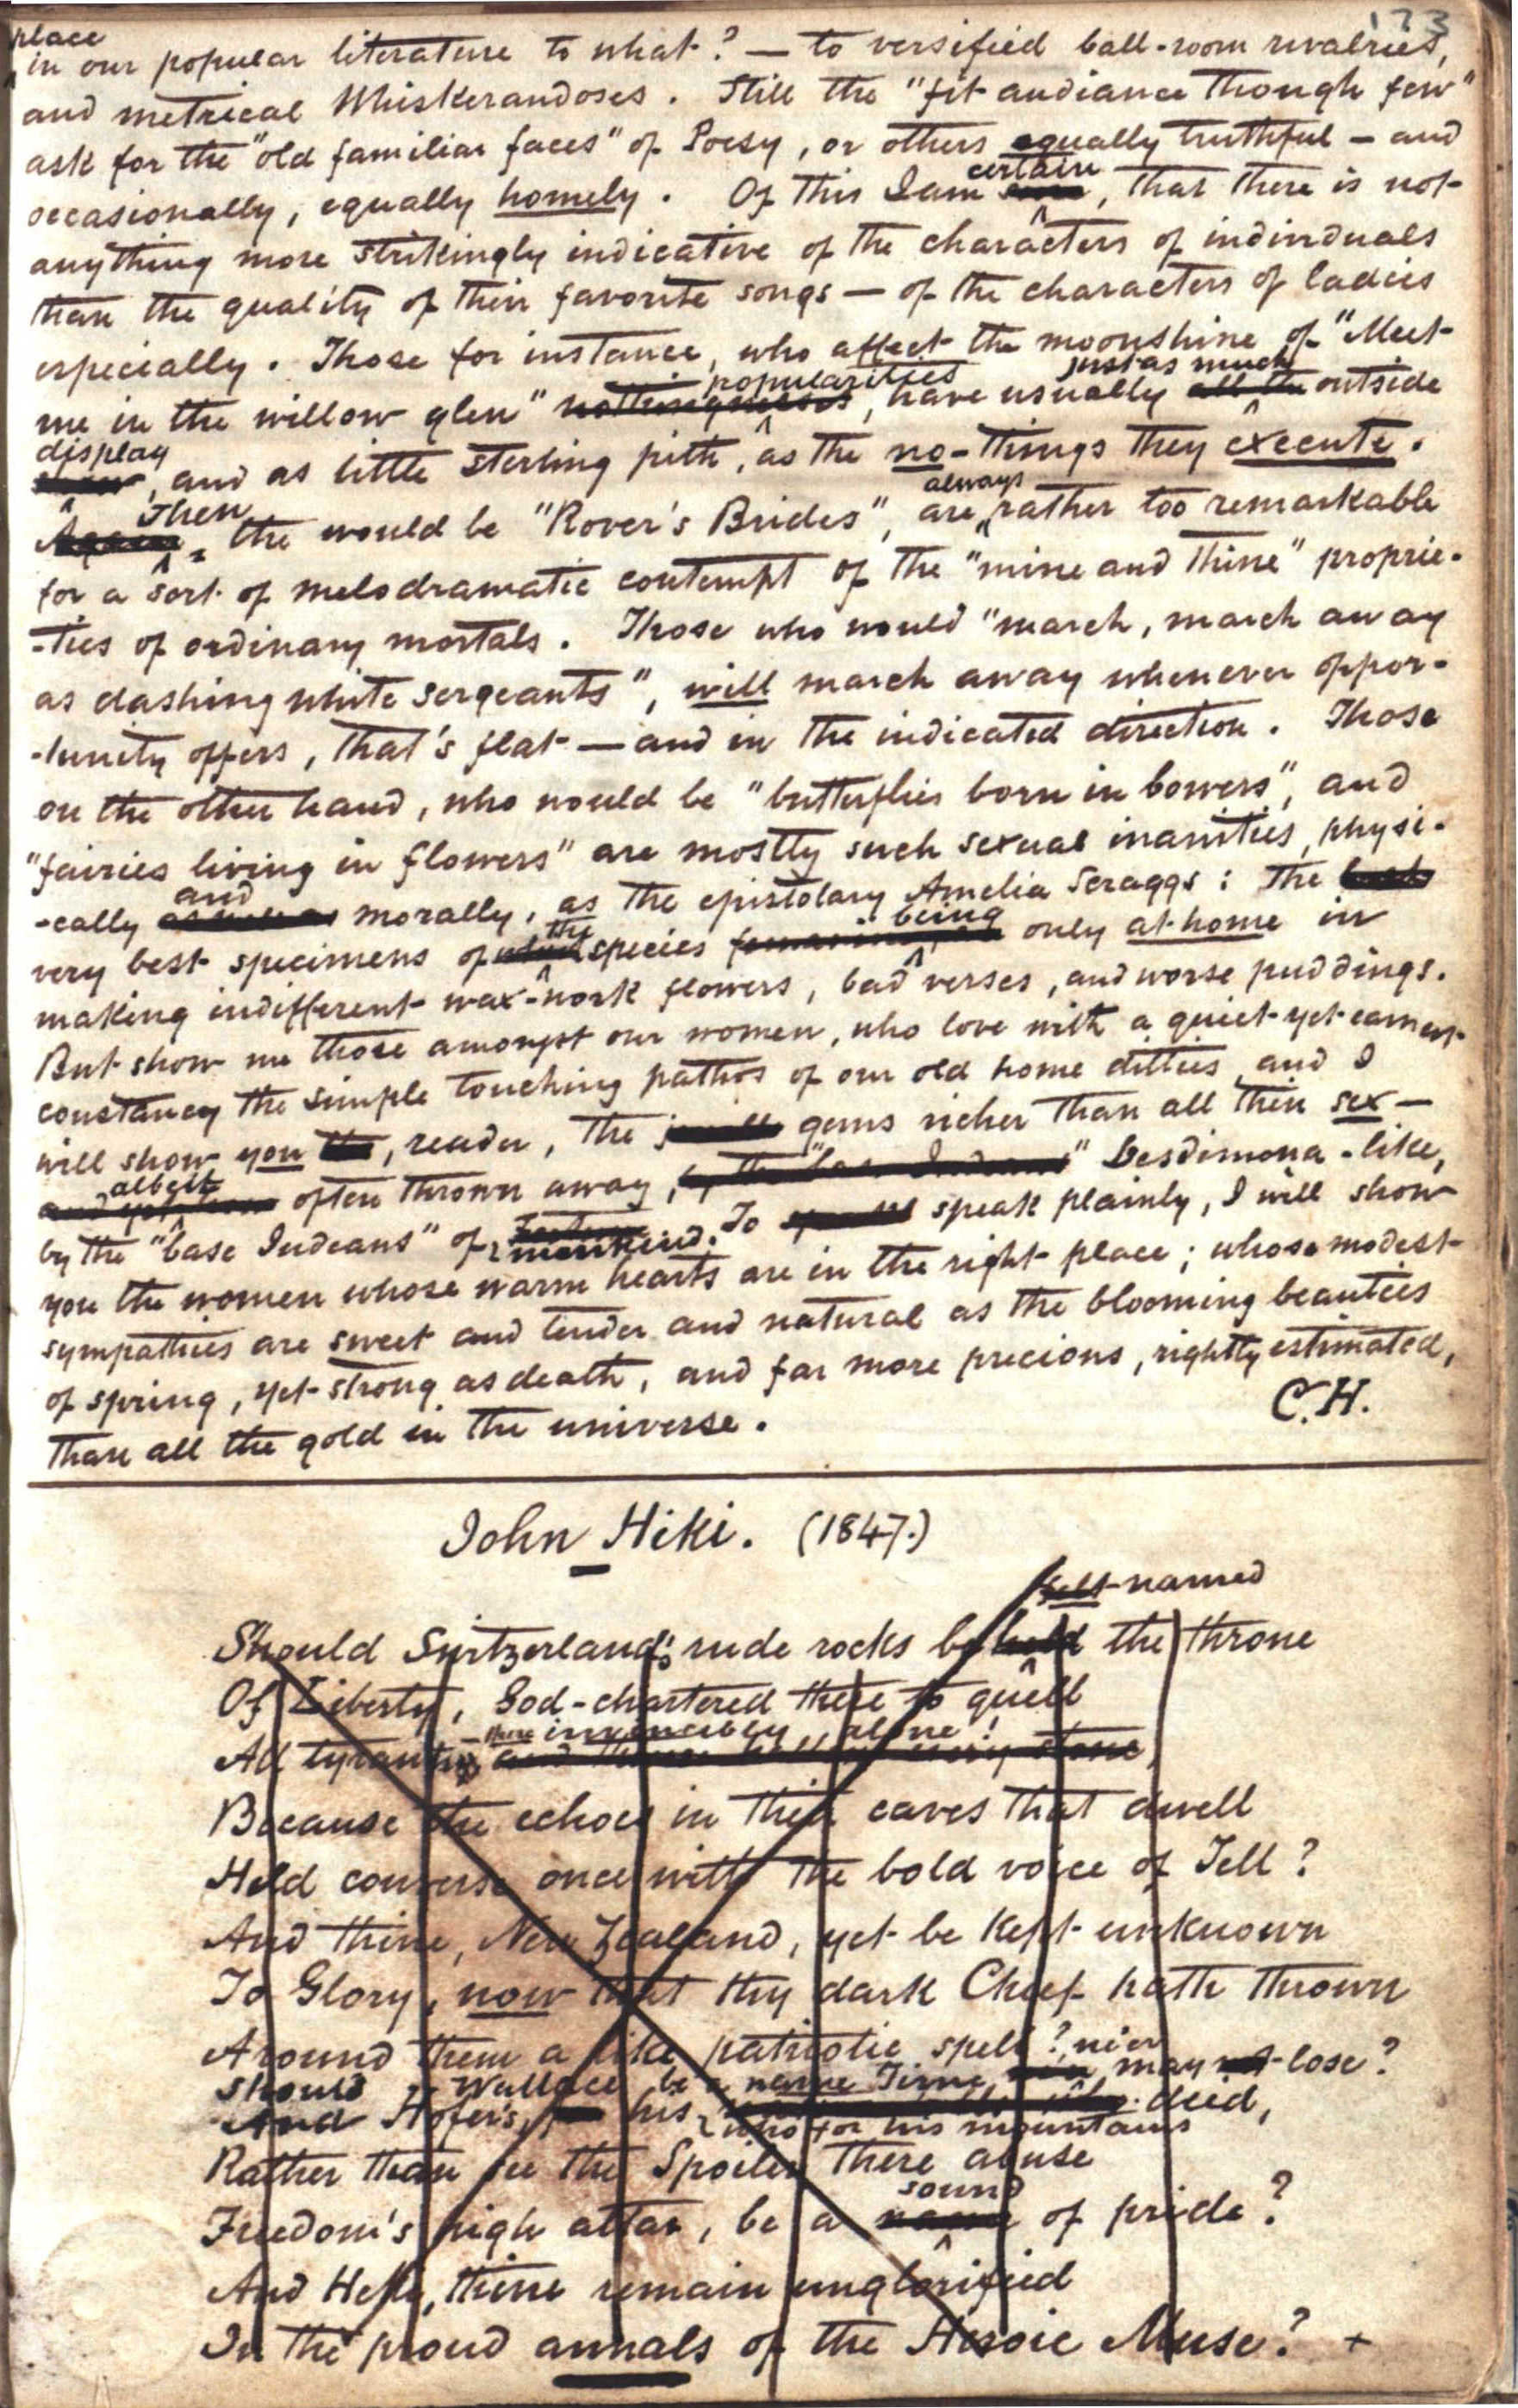 173
place
in our popular literature to what? — to versified ball-room rivalries,
and metrical Whiskerandoses. Still the "fit audiance though few"
ask for the "old familiar faces" of Poesy, or others equally truthful – and
certain
occasionally, equally homely. Of this I am sure, that there is not
anything more strikingly indicative of the characters of individuals
than the quality of their favorite songs — of the characters of ladies
especially. Those for instance, who affect the moonshine of "Meet
popularities just as much
me in the willow glen" nothingnesses, have usually all the outside
display
show, and as little sterling pith, as the no-things they execute.
Then always
Again, the would be "Rover's Brides", are rather too remarkable
for a sort of melodramatic contempt of the "mine and thine" proprie-
-ties of ordinary mortals. Those who would "march, march away
as dashing white sergeants", will march away whenever oppor-
-tunity offers, that's flat — and in the indicated direction. Those
on the other hand, who would be "butterflies born in bowers", and
"fairies living in flowers" are mostly such sexual inanities, physi-
and
-cally as well as morally, as the epistolary Amelia Scraggs: the
the being
very best specimens of which species only at home in
making indifferent wax-work flowers, bad verses, and worse puddings.
But show me those amongst our women, who love with a quiet yet earnest
constancy the simple touching pathos of our old home ditties, and I
will show you the, reader, the jewells gems richer than all their sex —
albeit
and yet how often thrown away, by the "base Indians" Desdimona-like,
by the "base Indeans" of mankind. To speak plainly, I will show
you the women whose warm hearts are in the right place; whose modest
sympathies are sweet and tender and natural as the blooming beauties
of spring, yet strong as death, and far more precious, rightly estimated,
than all the gold in the universe.
C.H.
John Hiki. (1847.)
self-named
Should Switzerland's rude rocks be held the throne
Of Liberty, God-chartered there to quell
there invincibly, alone!
All tyranny stone,
Because the echoes in their caves that dwell
Held converse once with the bold voice of Tell?
And thine, New Zealand, yet be kept unknown
To Glory, now that thy dark Chief hath thrown
Around them a like patriotic spell?
Should Wallace be a name Time ne'er may not lose?
And Hofer's, for his who for his mountains deed,
Rather than see the Spoiler there abuse
sound
Freedom's high altar, be a name of pride?
And Heki, thine remain unglorified
In the proud annals of the Heroic Muse? +